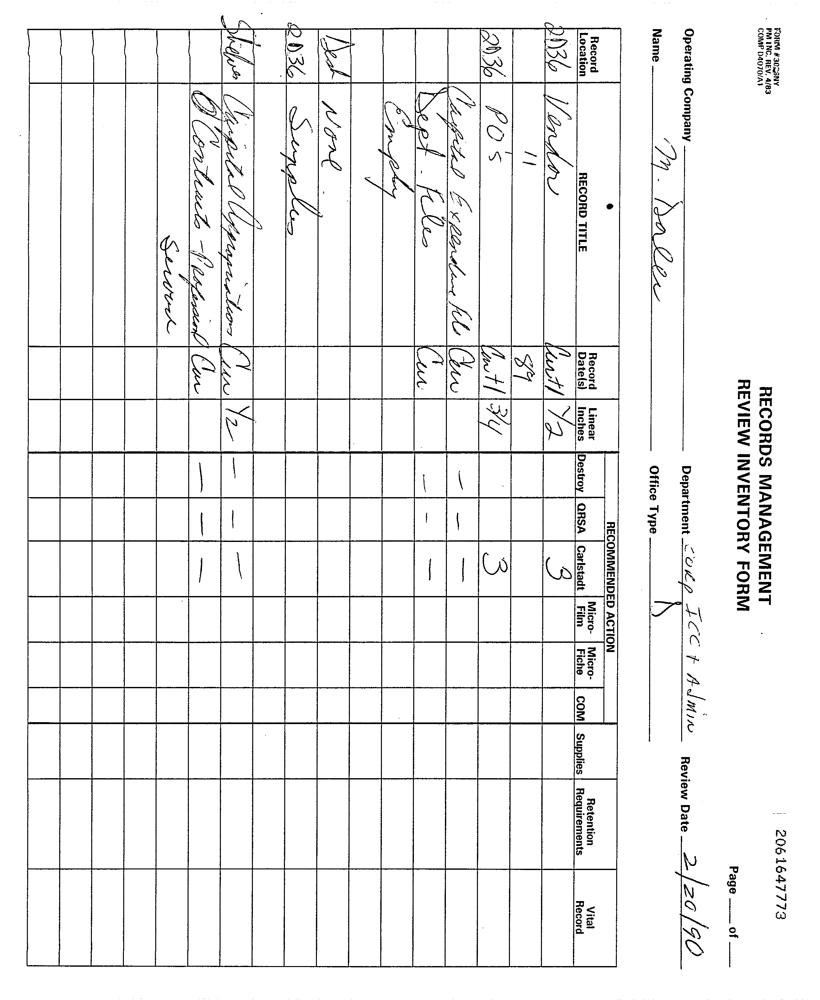 FORM #3023NY
PM INC. REV. 4/83
COMP D4070/A1
2061647773
RECORDS MANAGEMENT
REVIEW INVENTORY FORM
Page ___ of ___
Operating Company
Department Corp ICC + Admin
Review Date 2/20/90
Name M.
Office Type D
RECOMMENDED ACTION
Record Location RECORD TITLE Record Date(s) Linear Inches Destroy QRSA Carlstadt Micro-Film Micro-Fiche COM Supplies Retention Requirements Vital Record
2D36 Vendor Cur+1 1/2 3
" 89
2D36 PO's Cur+1 3/4 3
Capital Expenditure File Cur — — —
Dept. Files Cur — — —
Empty
Desk None
2D36 Supplies
Shelves Capital Appropriations Cur 1/2 — — —
Contracts - Professional Cur — — —
Services